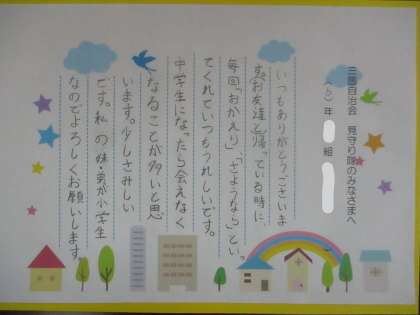 三國自治会 見守り隊のみなさまへ
(6)年 組
いつもありがとうございま
す。お友達と帰っている時に、
毎回「おかえり」、「さようなら」とい
てくれていつもうれしいです。
中学生になったら会えなく
なることが多いと思
います。少しさみしい
です。私の妹・弟が小学生
なのでよろしくお願いします。